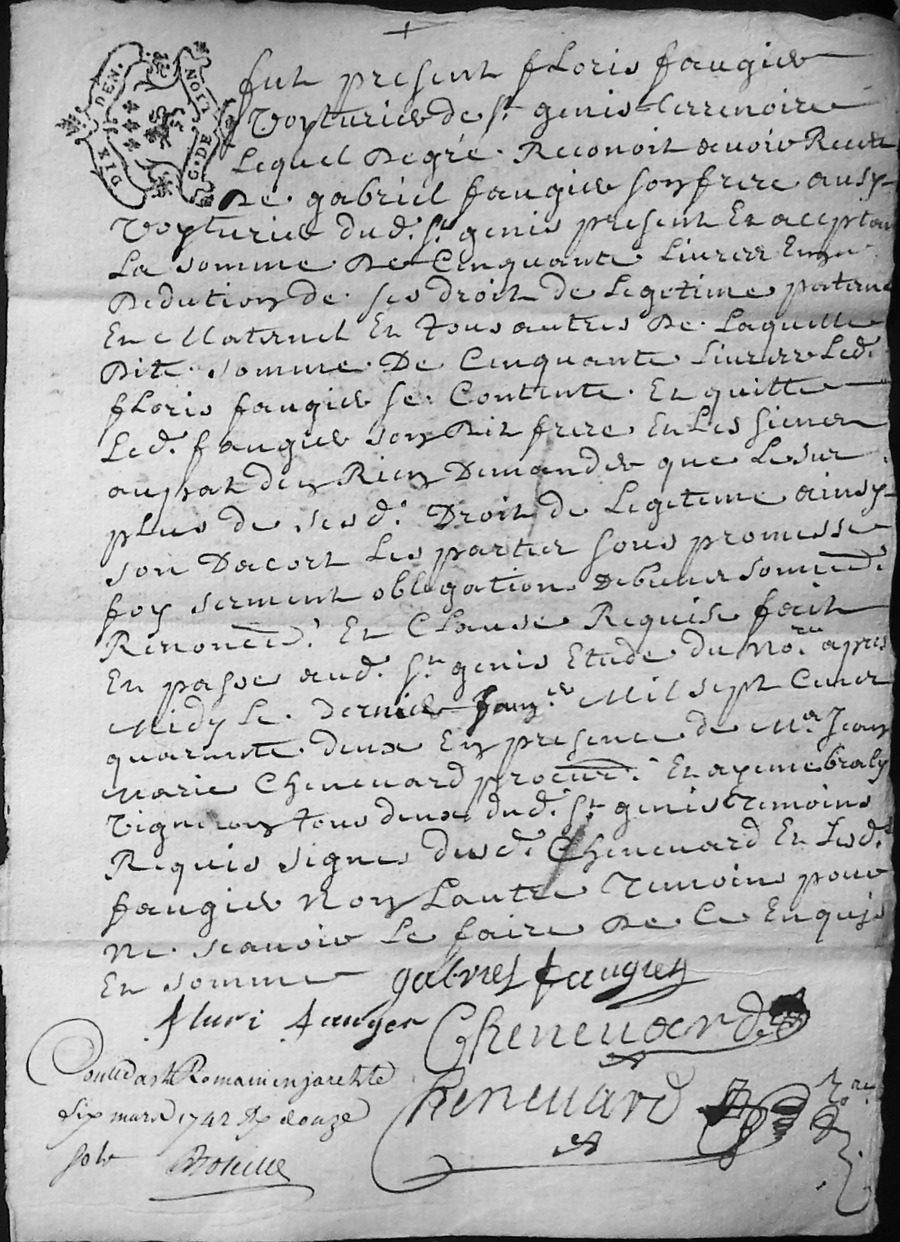 DIX DEN. G. DE LION NOIT
fut present fLoris faugier
Voyturier de st genis terrenoire
Lequel Degré Reconoit avoir Receu
De gabriel faugier son frere ausy
Voyturier dud. st genis present Et aceptan
La somme De Cinquante Livres En
Dedution de ses droit de Legetime paterne
En Maternel Et tous autres De Laquelle
Dite somme De Cinquante Livres Led.
fLoris faugier se Contente Et quitte
Led. faugier son Dit frere En Les siens
au pat den Rien Demander que Le sur
plus de sesd. Droit de Legeteme ainsy
son Dacort Les parties sous promesse
foy serment obligation De biens soumed.
Renoncéd. Et CLause Requise fait
En passé aud. st genis Etude du No.re apres
Midy Le dernier Janv.er Mil sept Cent
quarente deux En presence de Mr Jean
Marie Chenevard procur. Et aymebraly
Vigneron tous deux dud. st genis temoins
Requis signes dusd. Chenevard En Lesd.
faugier Non Lautre Temoins pour
Ne scavoir Le faire De Ce Enquis
En sommé gabriel faugier
fluri fauger Chenevard
Chenevard No.re
Conlle a st Romain en jarest le
six mars 1742 R douze
sols